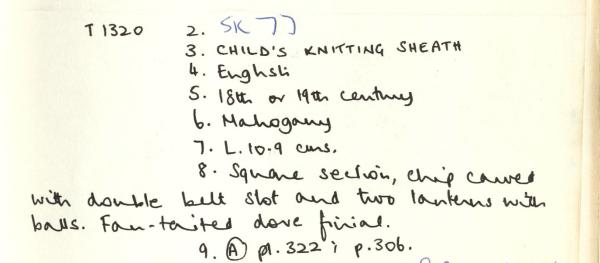 T 1320 2. SK 77
3. CHILD'S KNITTING SHEATH
4. English
5. 18th or 19th century
6. Mahogany
7. L. 10.9 cms.
8. Square section, chip carved
with double belt slot and two lanterns with
balls. Fan-tailed dove finial.
9. Ⓐ pl. 322; p. 306.